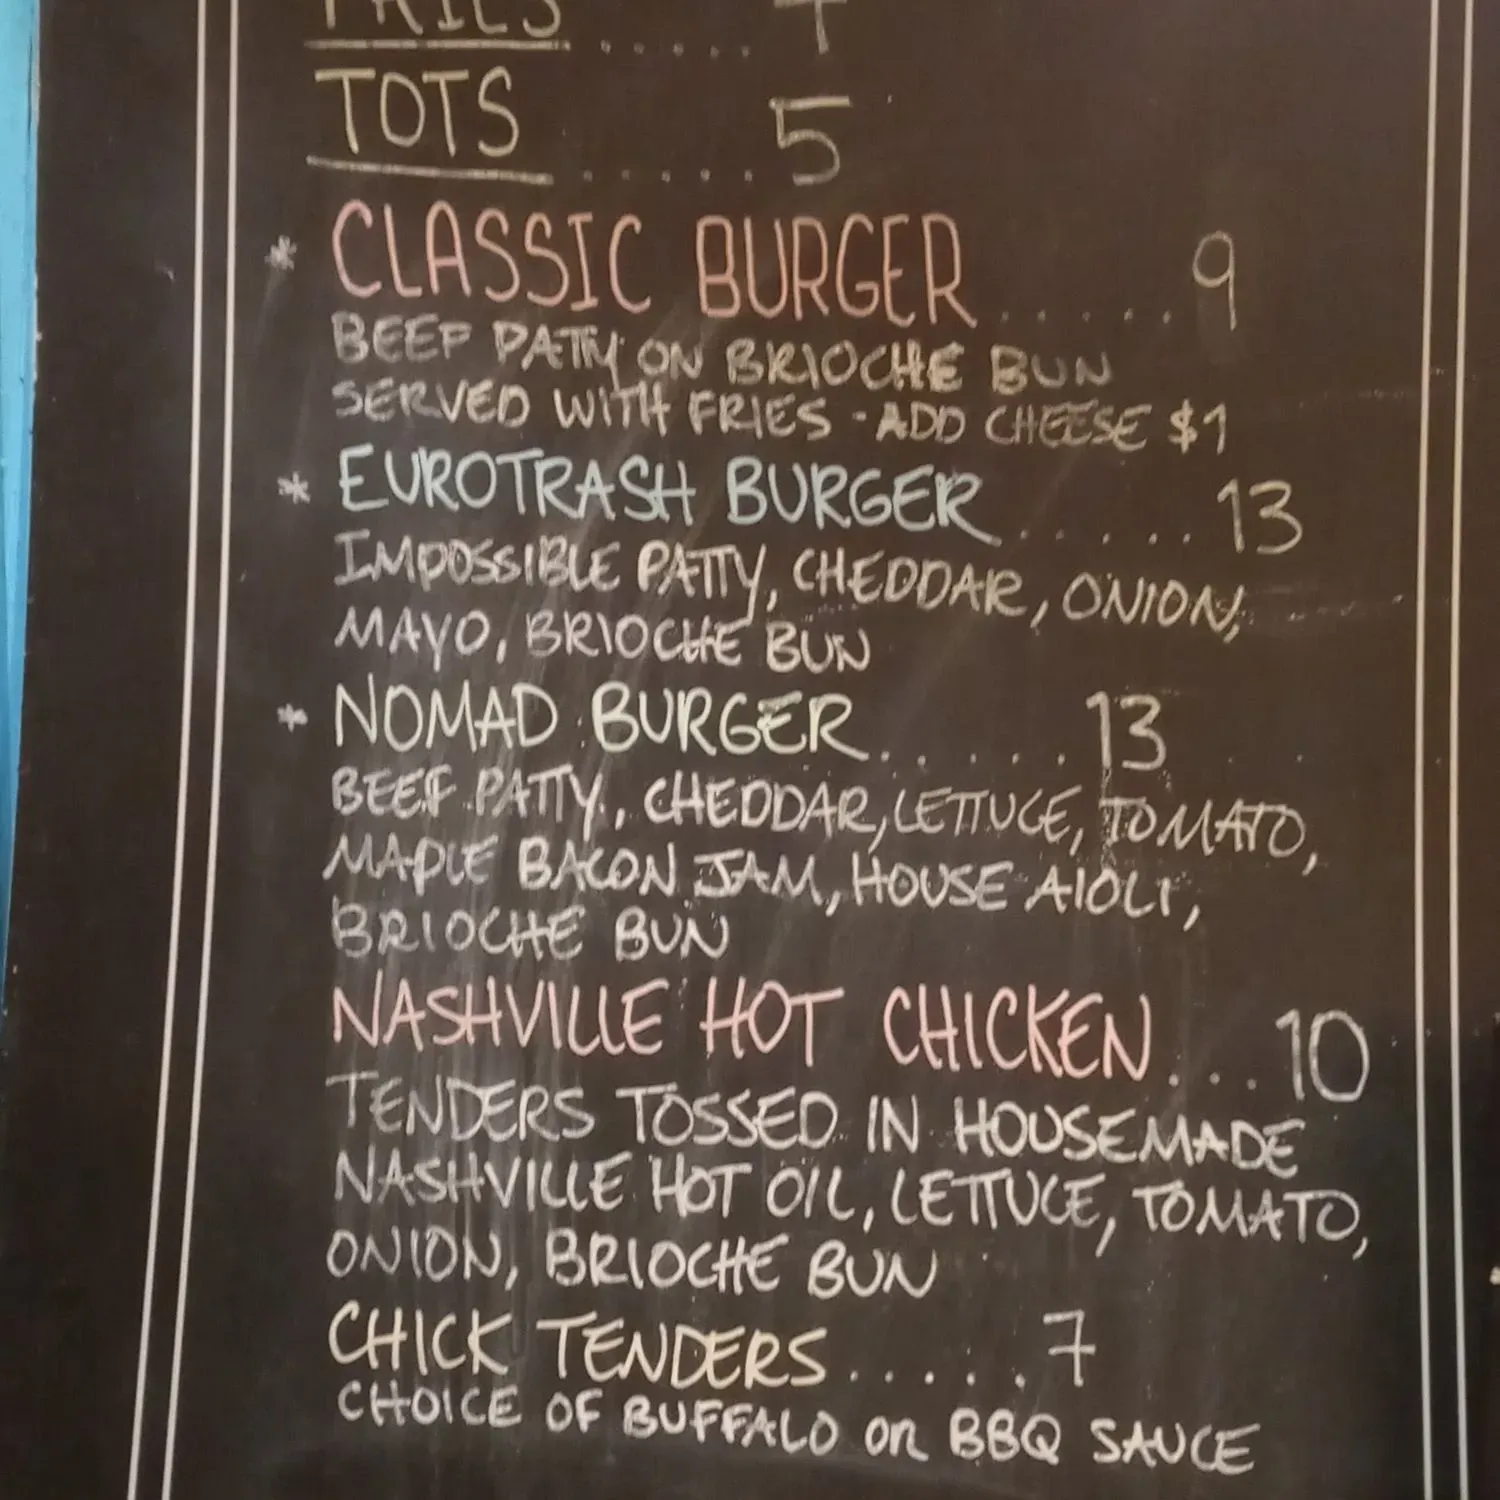 FRIES ..... 4
TOTS ..... 5
* CLASSIC BURGER ..... 9
BEEF PATTY ON BRIOCHE BUN
SERVED WITH FRIES - ADD CHEESE $1
* EUROTRASH BURGER ...... 13
IMPOSSIBLE PATTY, CHEDDAR, ONION,
MAYO, BRIOCHE BUN
* NOMAD BURGER ...... 13
BEEF PATTY, CHEDDAR, LETTUCE, TOMATO,
MAPLE BACON JAM, HOUSE AIOLI,
BRIOCHE BUN
NASHVILLE HOT CHICKEN ... 10
TENDERS TOSSED IN HOUSEMADE
NASHVILLE HOT OIL, LETTUCE, TOMATO,
ONION, BRIOCHE BUN
CHICK TENDERS ..... 7
CHOICE OF BUFFALO OR BBQ SAUCE